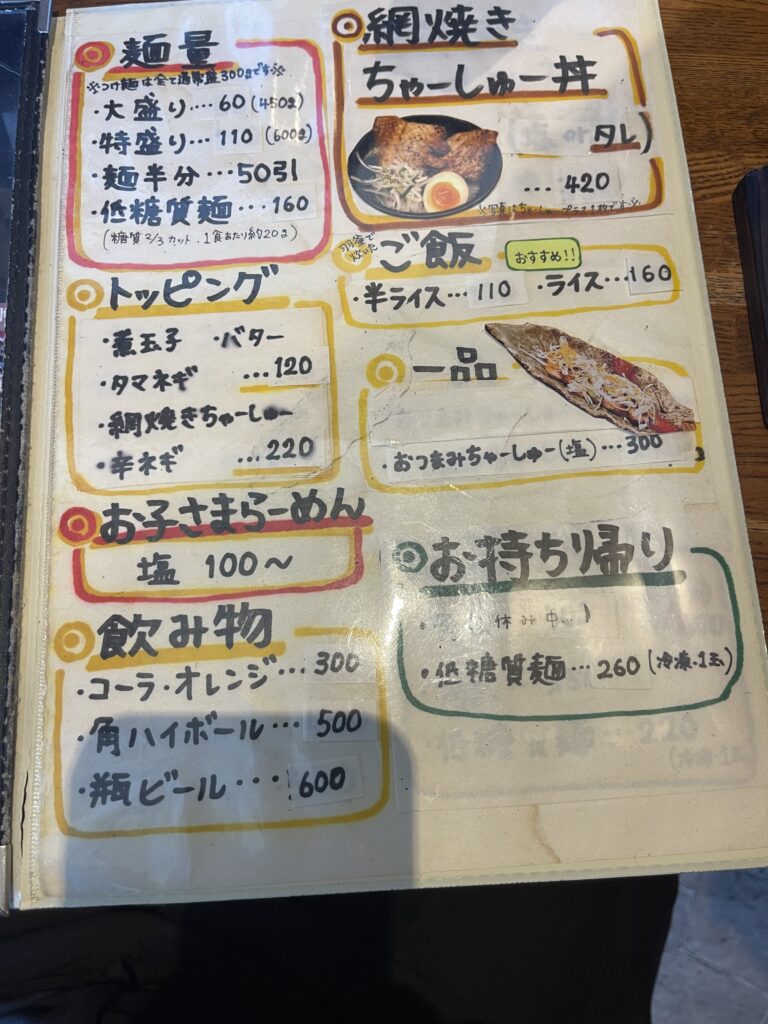 麺量
※つけ麺は全て通常盛300gです※
・大盛り…60(450g)
・特盛り…110(600g)
・麺半分…50引
・低糖質麺…160
(糖質2/3カット.1食あたり約20g)
トッピング
・煮玉子 ・バター
・タマネギ …120
・網焼きちゃーしゅー
・辛ネギ …220
お子さまらーめん
塩 100〜
飲み物
・コーラ・オレンジ…300
・角ハイボール…500
・瓶ビール…600
網焼き
ちゃーしゅー丼
(塩orタレ)
…420
羽釜で炊いた
ご飯
おすすめ!!
・半ライス…110 ・ライス…160
一品
・おつまみちゃーしゅー(塩)…300
お持ち帰り
休み中
・低糖質麺…260(冷凍・1玉)